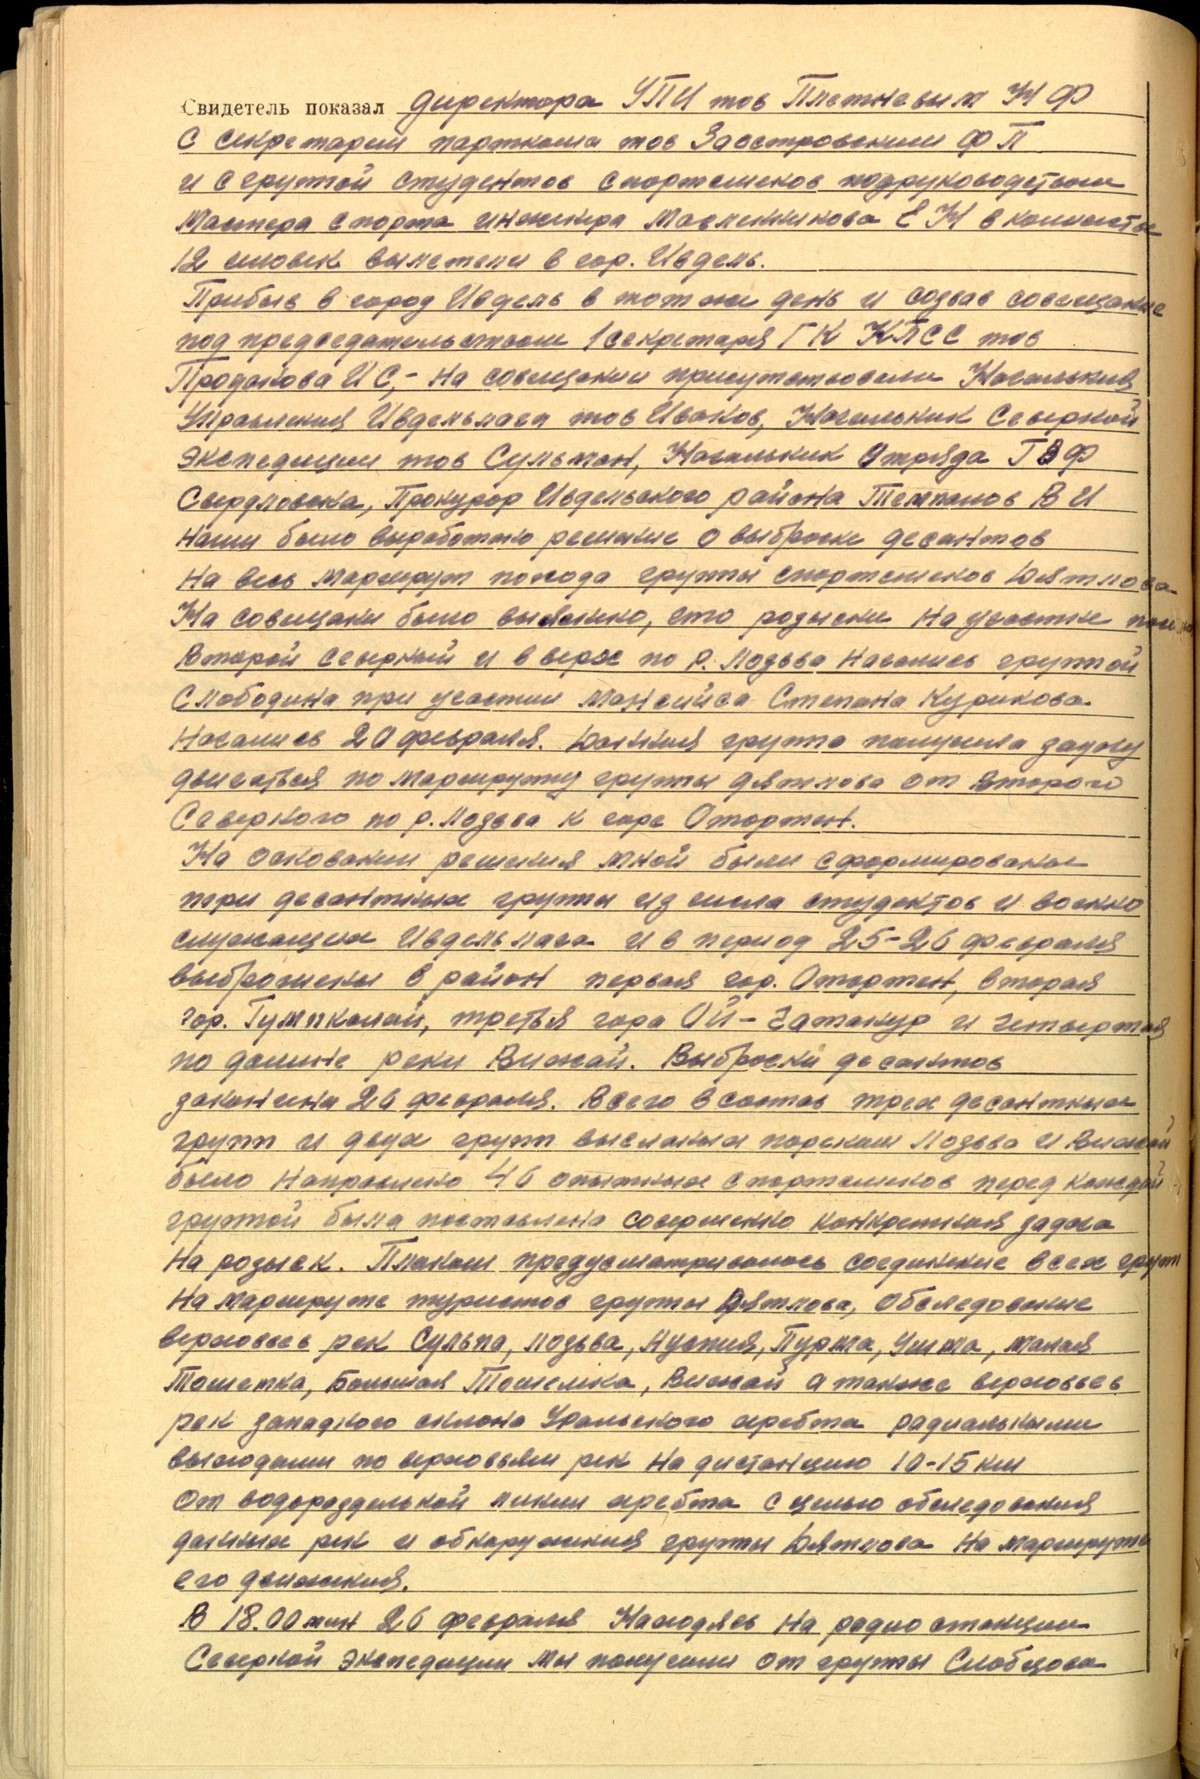 Свидетель показал директора УПИ тов Плетневым Н Ф
С секретарем парткома тов Заостровским Ф П
и с группой студентов спортсменов под руководством
Мастера спорта инженера Масленникова Е Н в количестве
12 человек вылетели в гор. Ивдель.
Прибыв в город Ивдель в тот же день и создав совещание
под председательством 1 секретаря ГК КПСС тов
Продакова И С, - На совещании присутствовали Начальник
Управления Ивдельлага тов Иванов, Начальник Северной
Экспедиции тов Сульман, Начальник Отряда ГВФ
Свердловска, Прокурор Ивдельского района Темпалов В И
Нами было выработано решение о выброске десантов
На весь маршрут похода группы спортсменов Дятлова.
На совещании было выяснено, что розыски на участке пос.
Второй Северный и вверх по р. Лозьва Начались группой
Слободина при участии Мансийса Степана Курикова
Начались 20 февраля. Данная группа получила задачу
двигаться по маршруту группы Дятлова от Второго
Северного по р. Лозьва к горе Отортен.
На основании решения мной были сформированы
три десантных группы из числа студентов и военно
служащих Ивдельлага и в период 25-26 февраля
выброшены в район первая гор. Отортен, вторая
гор. Гумпкопай, третья гора Ой-Чатокур и четвертая
по долине реки Вижай. Выброски десантов
закончена 26 февраля. Всего в состав трех десантных
групп и двух групп высланых по рекам Лозьва и Вижай
было Направлено 46 опытных спортсменов перед каждой
группой была поставлена совершенно конкретная задача
на розыск. Планом предусматривалось соединение всех групп
На маршруте туристов группы Дятлова, Обследование
верховьев рек Сульпа, Лозьва, Ауспия, Пурма, Ушма, Малая
Тошемка, Большая Тошемка, Вижай а также верховьев
рек западного склона Уральского хребта радиальными
выходами по верховьям рек на дистанцию 10-15 км
От водораздельной линии хребта с целью обследования
данных рек и обнаружения группы Дятлова на маршруте
его движения.
В 18.00 мин 26 февраля Находясь на радио станции
Северной экспедиции мы получили от группы Слобцова